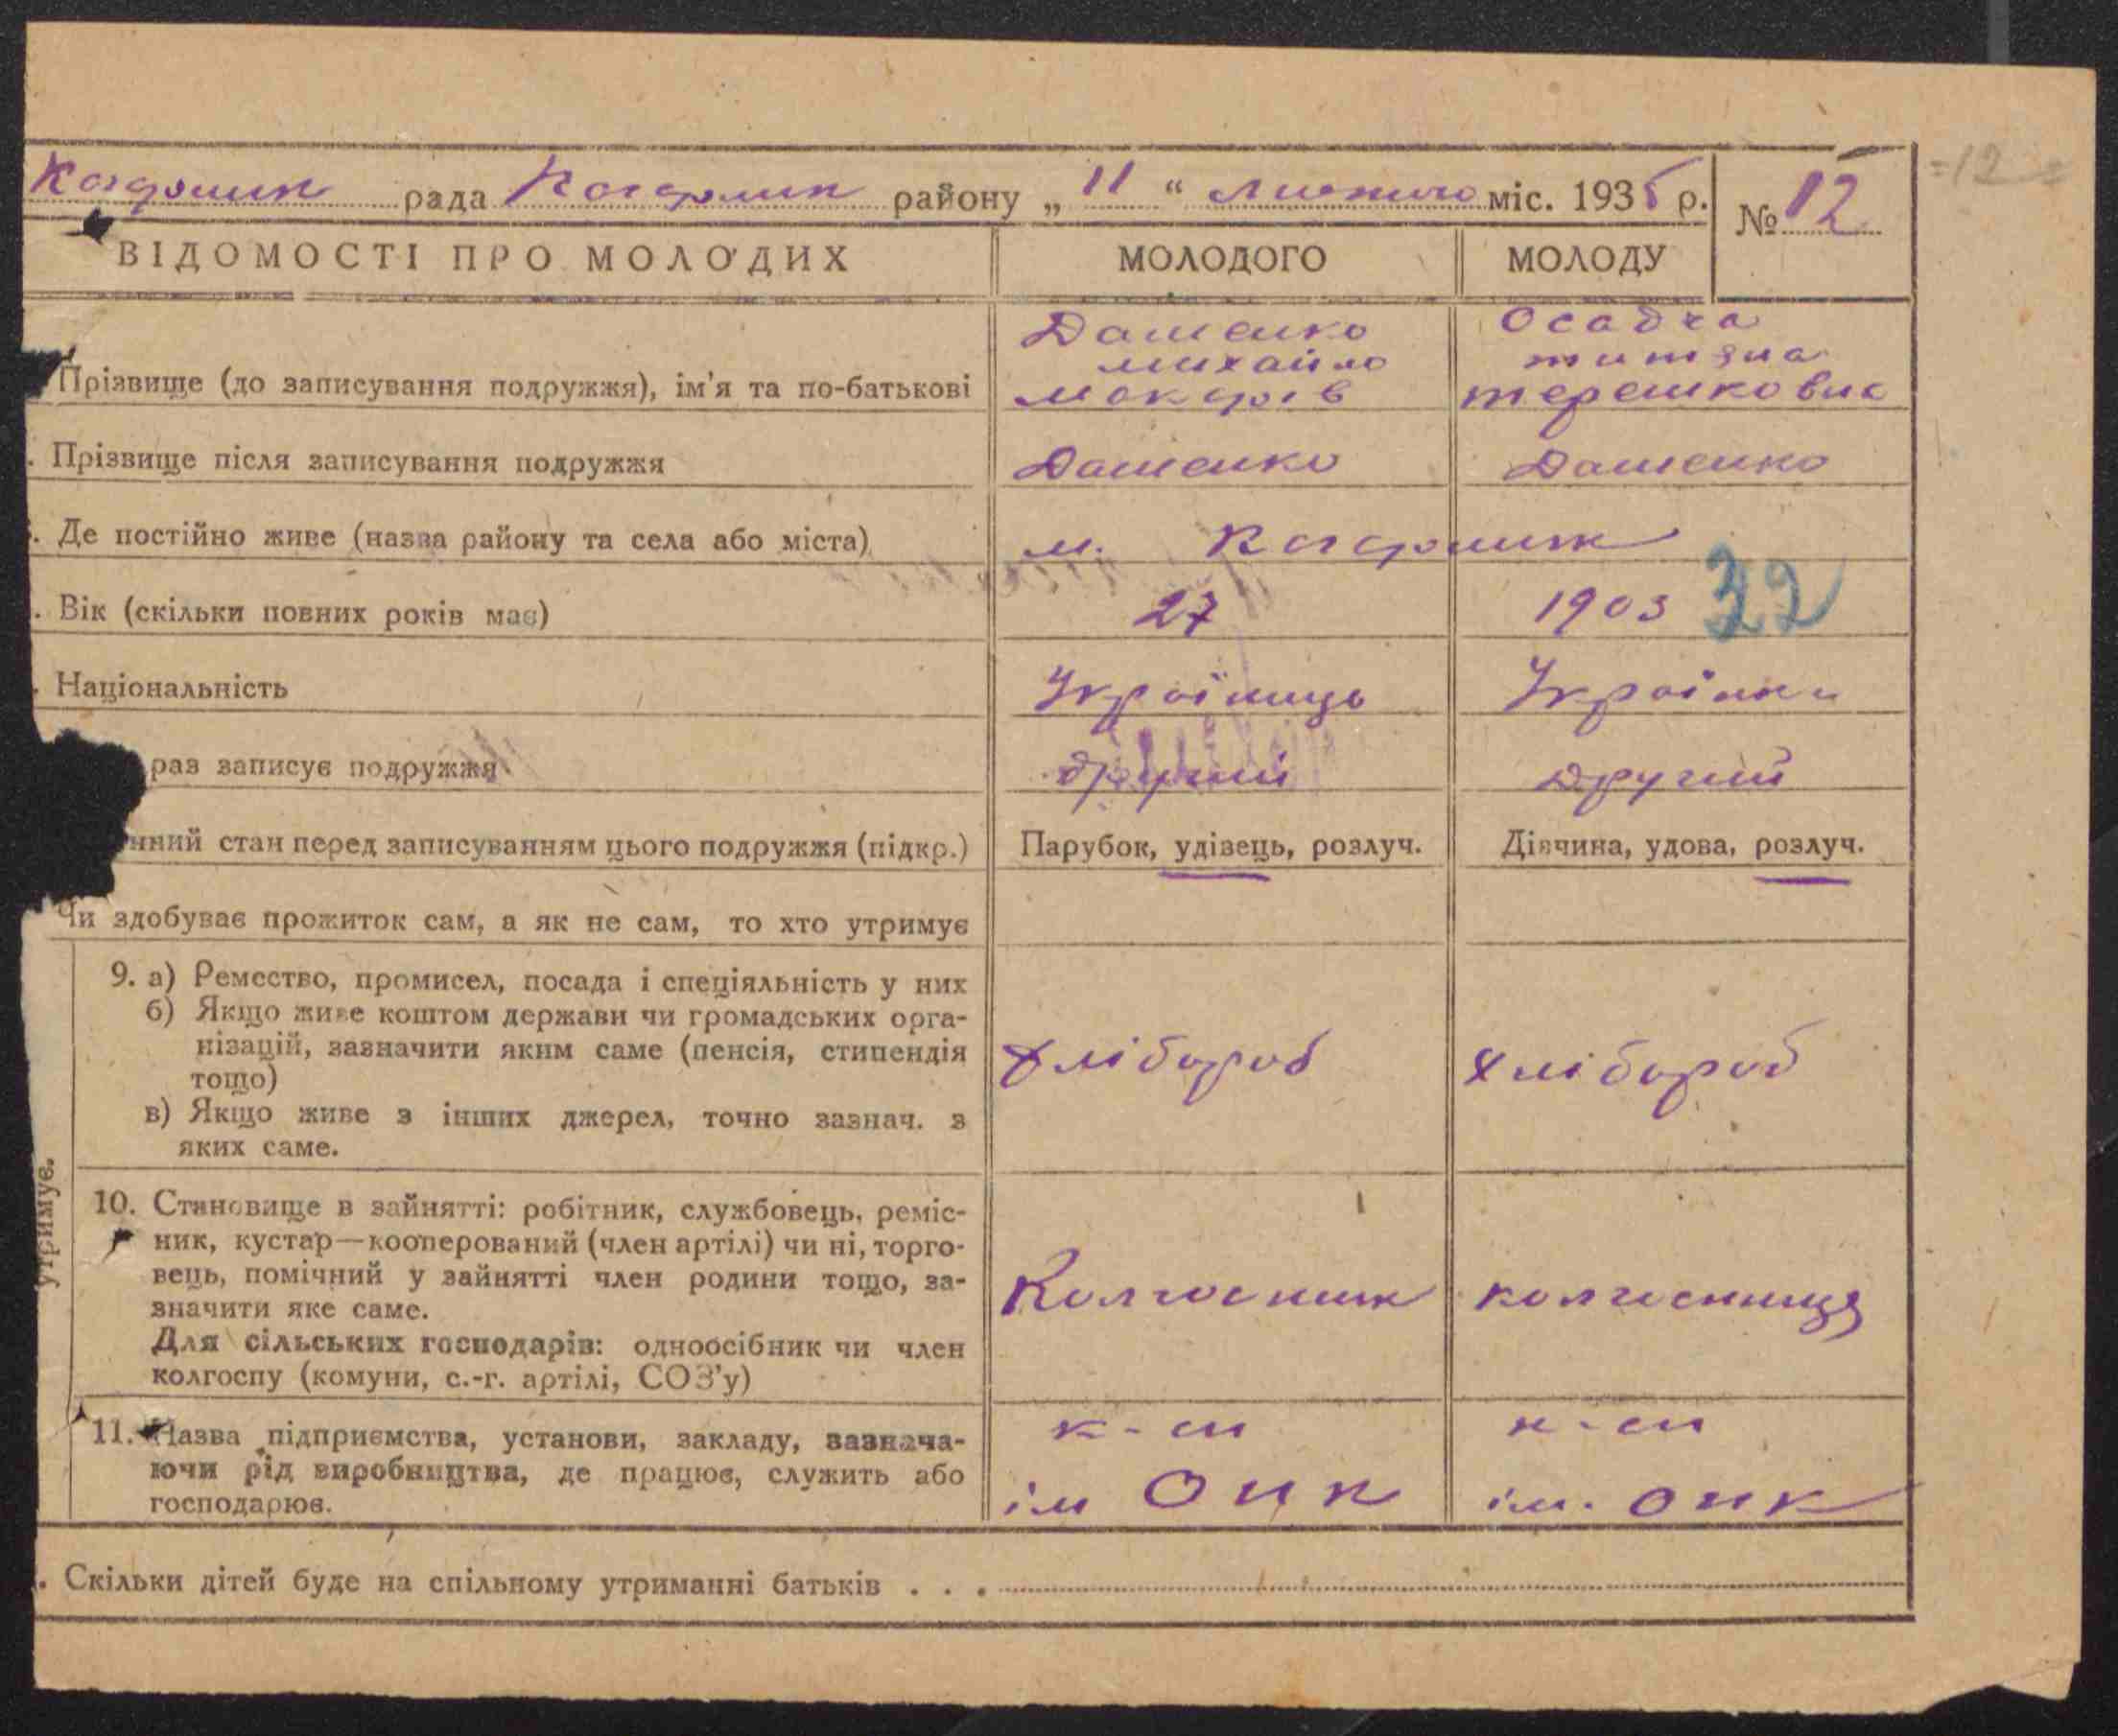 Кагарлик рада Кагарлик району „ 11 “ лютого міс. 1935 р. № 12 =12=
ВІДОМОСТІ ПРО МОЛОДИХ МОЛОДОГО МОЛОДУ
Дашенко Осадча
Михайло
Прізвище (до записування подружжя), ім'я та по-батькові Макарів Терешковна
. Прізвище після записування подружжя Дашенко Дашенко
. Де постійно живе (назва району та села або міста) м. Кагарлик
. Вік (скільки повних років має) 27 1903 32
. Національність Українець Українка
раз записує подружжя другий другий
нний стан перед записуванням цього подружжя (підкр.) Парубок, удівець, розлуч. Дівчина, удова, розлуч.
Чи здобуває прожиток сам, а як не сам, то хто утримує
утримує.
9. а) Ремество, промисел, посада і спеціяльність у них
б) Якщо живе коштом держави чи громадських орга-
нізацій, зазначити яким саме (пенсія, стипендія
тощо)
хлібороб хлібороб
в) Якщо живе з інших джерел, точно зазнач. з
яких саме.
10. Становище в зайнятті: робітник, службовець, реміс-
ник, кустар—кооперований (член артілі) чи ні, торго-
вець, помічний у зайнятті член родини тощо, за-
значити яке саме.
Колгосник колгосниця
Для сільських господарів: одноосібник чи член
колгоспу (комуни, с.-г. артілі, СОЗ'у)
11. Назва підприємства, установи, закладу, зазнача-
ючи рід виробництва, де працює, служить або
господарює.
ім ім.
. Скільки дітей буде на спільному утриманні батьків . . .